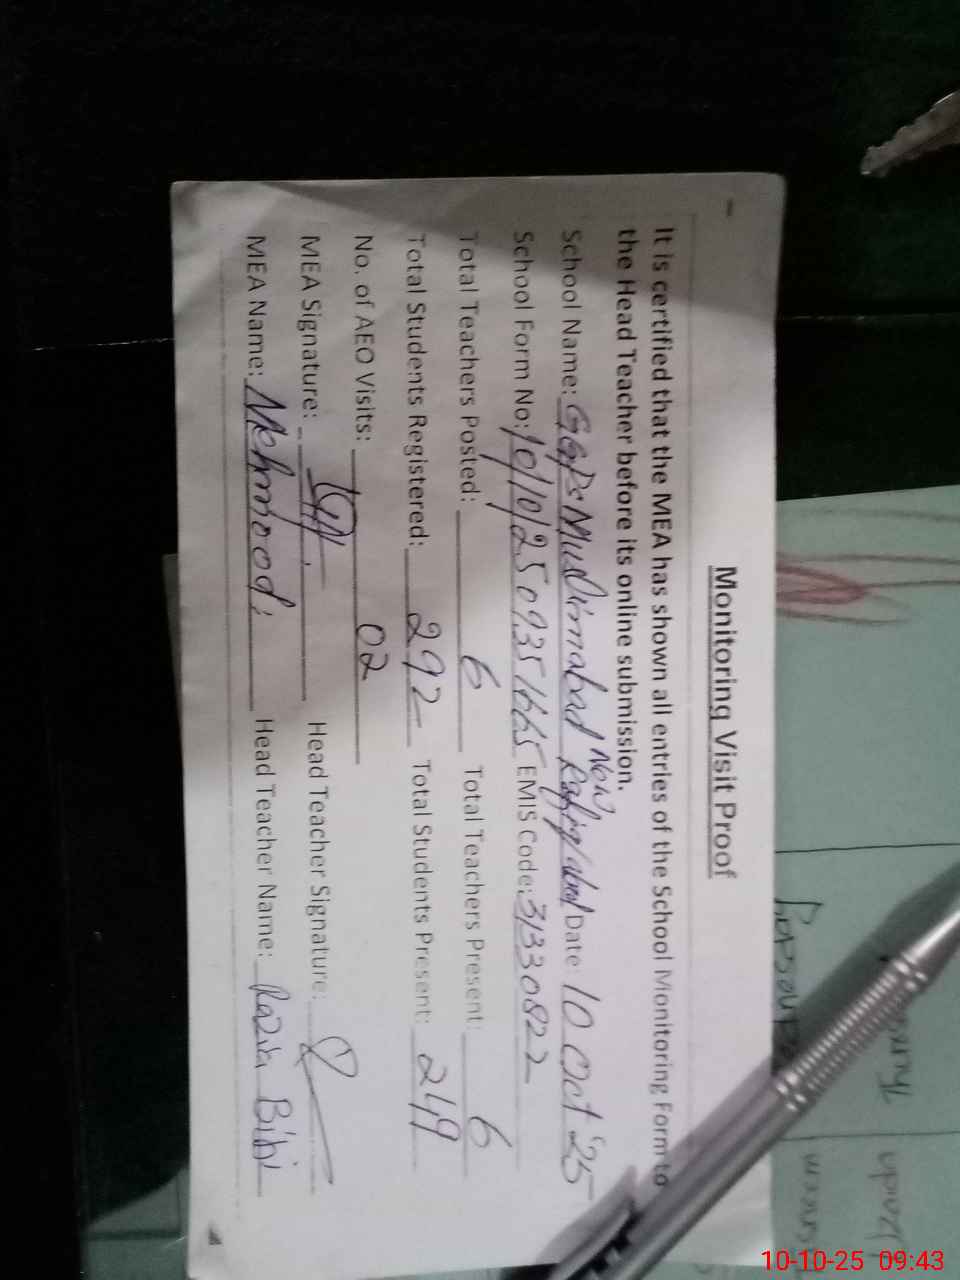 Monitoring Visit Proof
It is certified that the MEA has shown all entries of the School Monitoring Form to
the Head Teacher before its online submission.
School Name: GGPS Muslimabad New Rafiqabad Date: 10 Oct 25
School Form No: EMIS Code: 31330822
Total Teachers Posted: 6 Total Teachers Present: 6
Total Students Registered: 292 Total Students Present: 249
No. of AEO Visits: 02
MEA Signature: Head Teacher Signature:
MEA Name: Mehmood Head Teacher Name: Razia Bibi
10-10-25 09:43